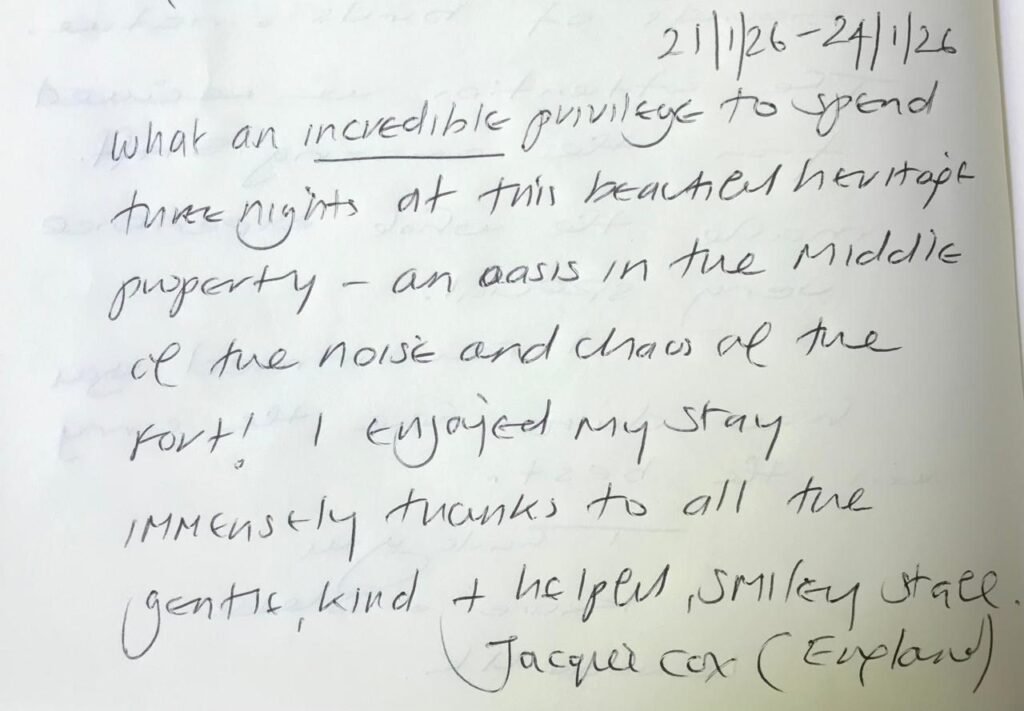 21/1/26 - 24/1/26
What an incredible privilege to spend
three nights at this beautiful heritage
property - an oasis in the middle
of the noise and chaos of the
Fort! I enjoyed my stay
immensely thanks to all the
gentle, kind + helpful, smiley staff.
Jacquie Cox (England)